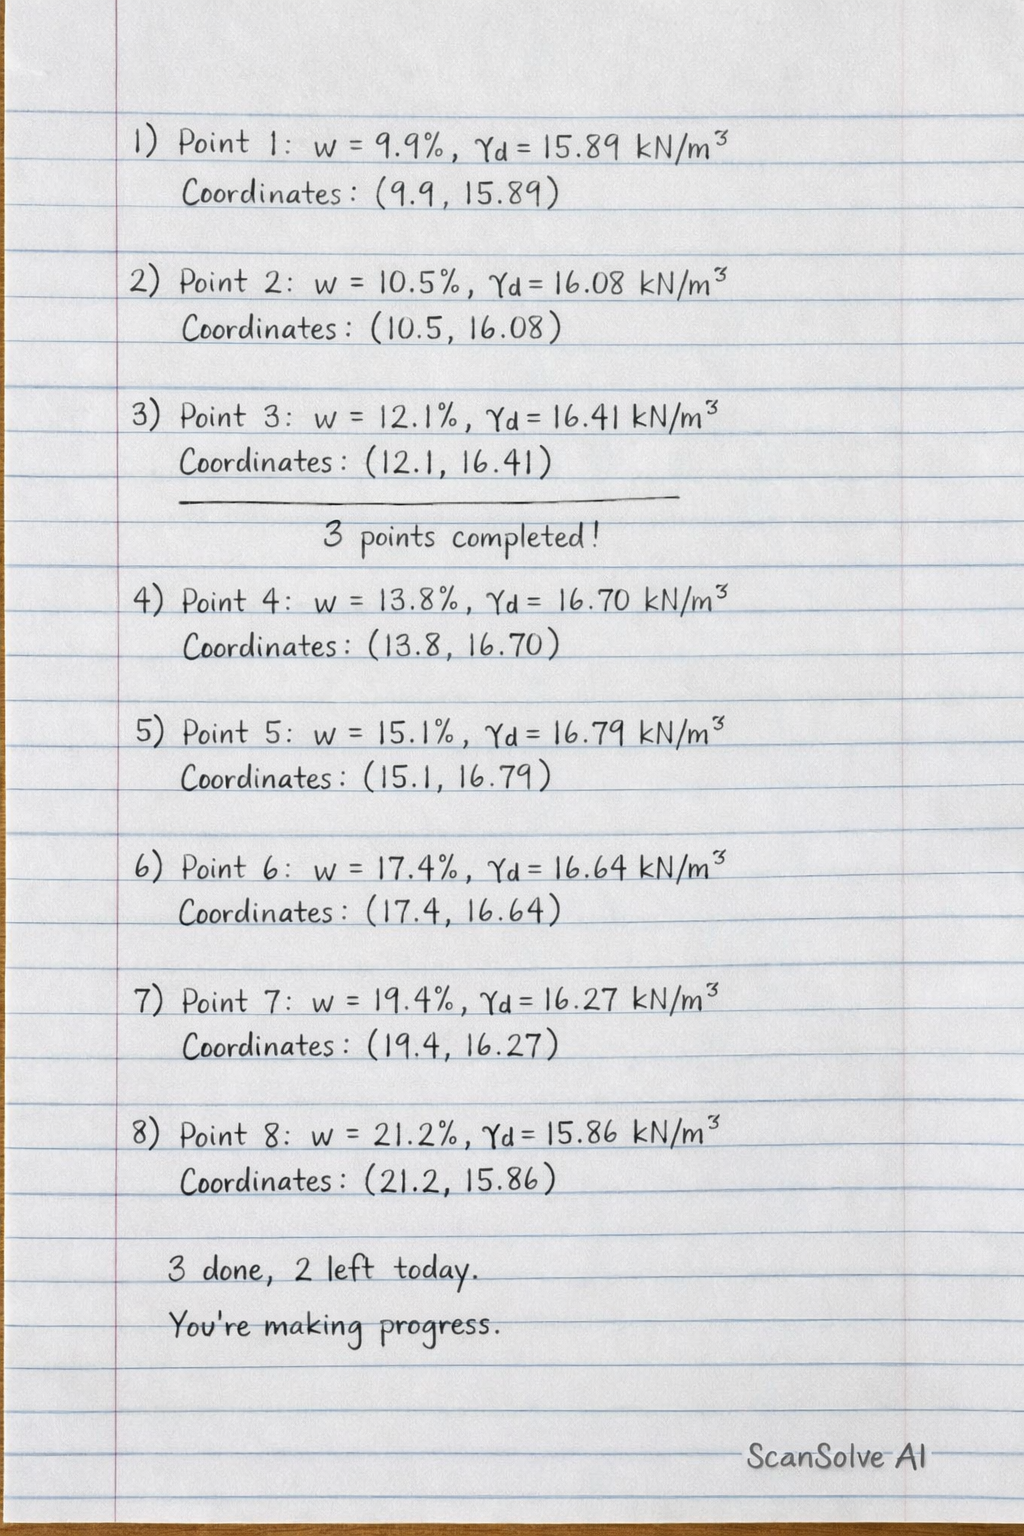 1) Point 1: w = 9.9%, γd = 15.89 kN/m³
Coordinates: (9.9, 15.89)
2) Point 2: w = 10.5%, γd = 16.08 kN/m³
Coordinates: (10.5, 16.08)
3) Point 3: w = 12.1%, γd = 16.41 kN/m³
Coordinates: (12.1, 16.41)
3 points completed!
4) Point 4: w = 13.8%, γd = 16.70 kN/m³
Coordinates: (13.8, 16.70)
5) Point 5: w = 15.1%, γd = 16.79 kN/m³
Coordinates: (15.1, 16.79)
6) Point 6: w = 17.4%, γd = 16.64 kN/m³
Coordinates: (17.4, 16.64)
7) Point 7: w = 19.4%, γd = 16.27 kN/m³
Coordinates: (19.4, 16.27)
8) Point 8: w = 21.2%, γd = 15.86 kN/m³
Coordinates: (21.2, 15.86)
3 done, 2 left today.
You're making progress.
ScanSolve AI